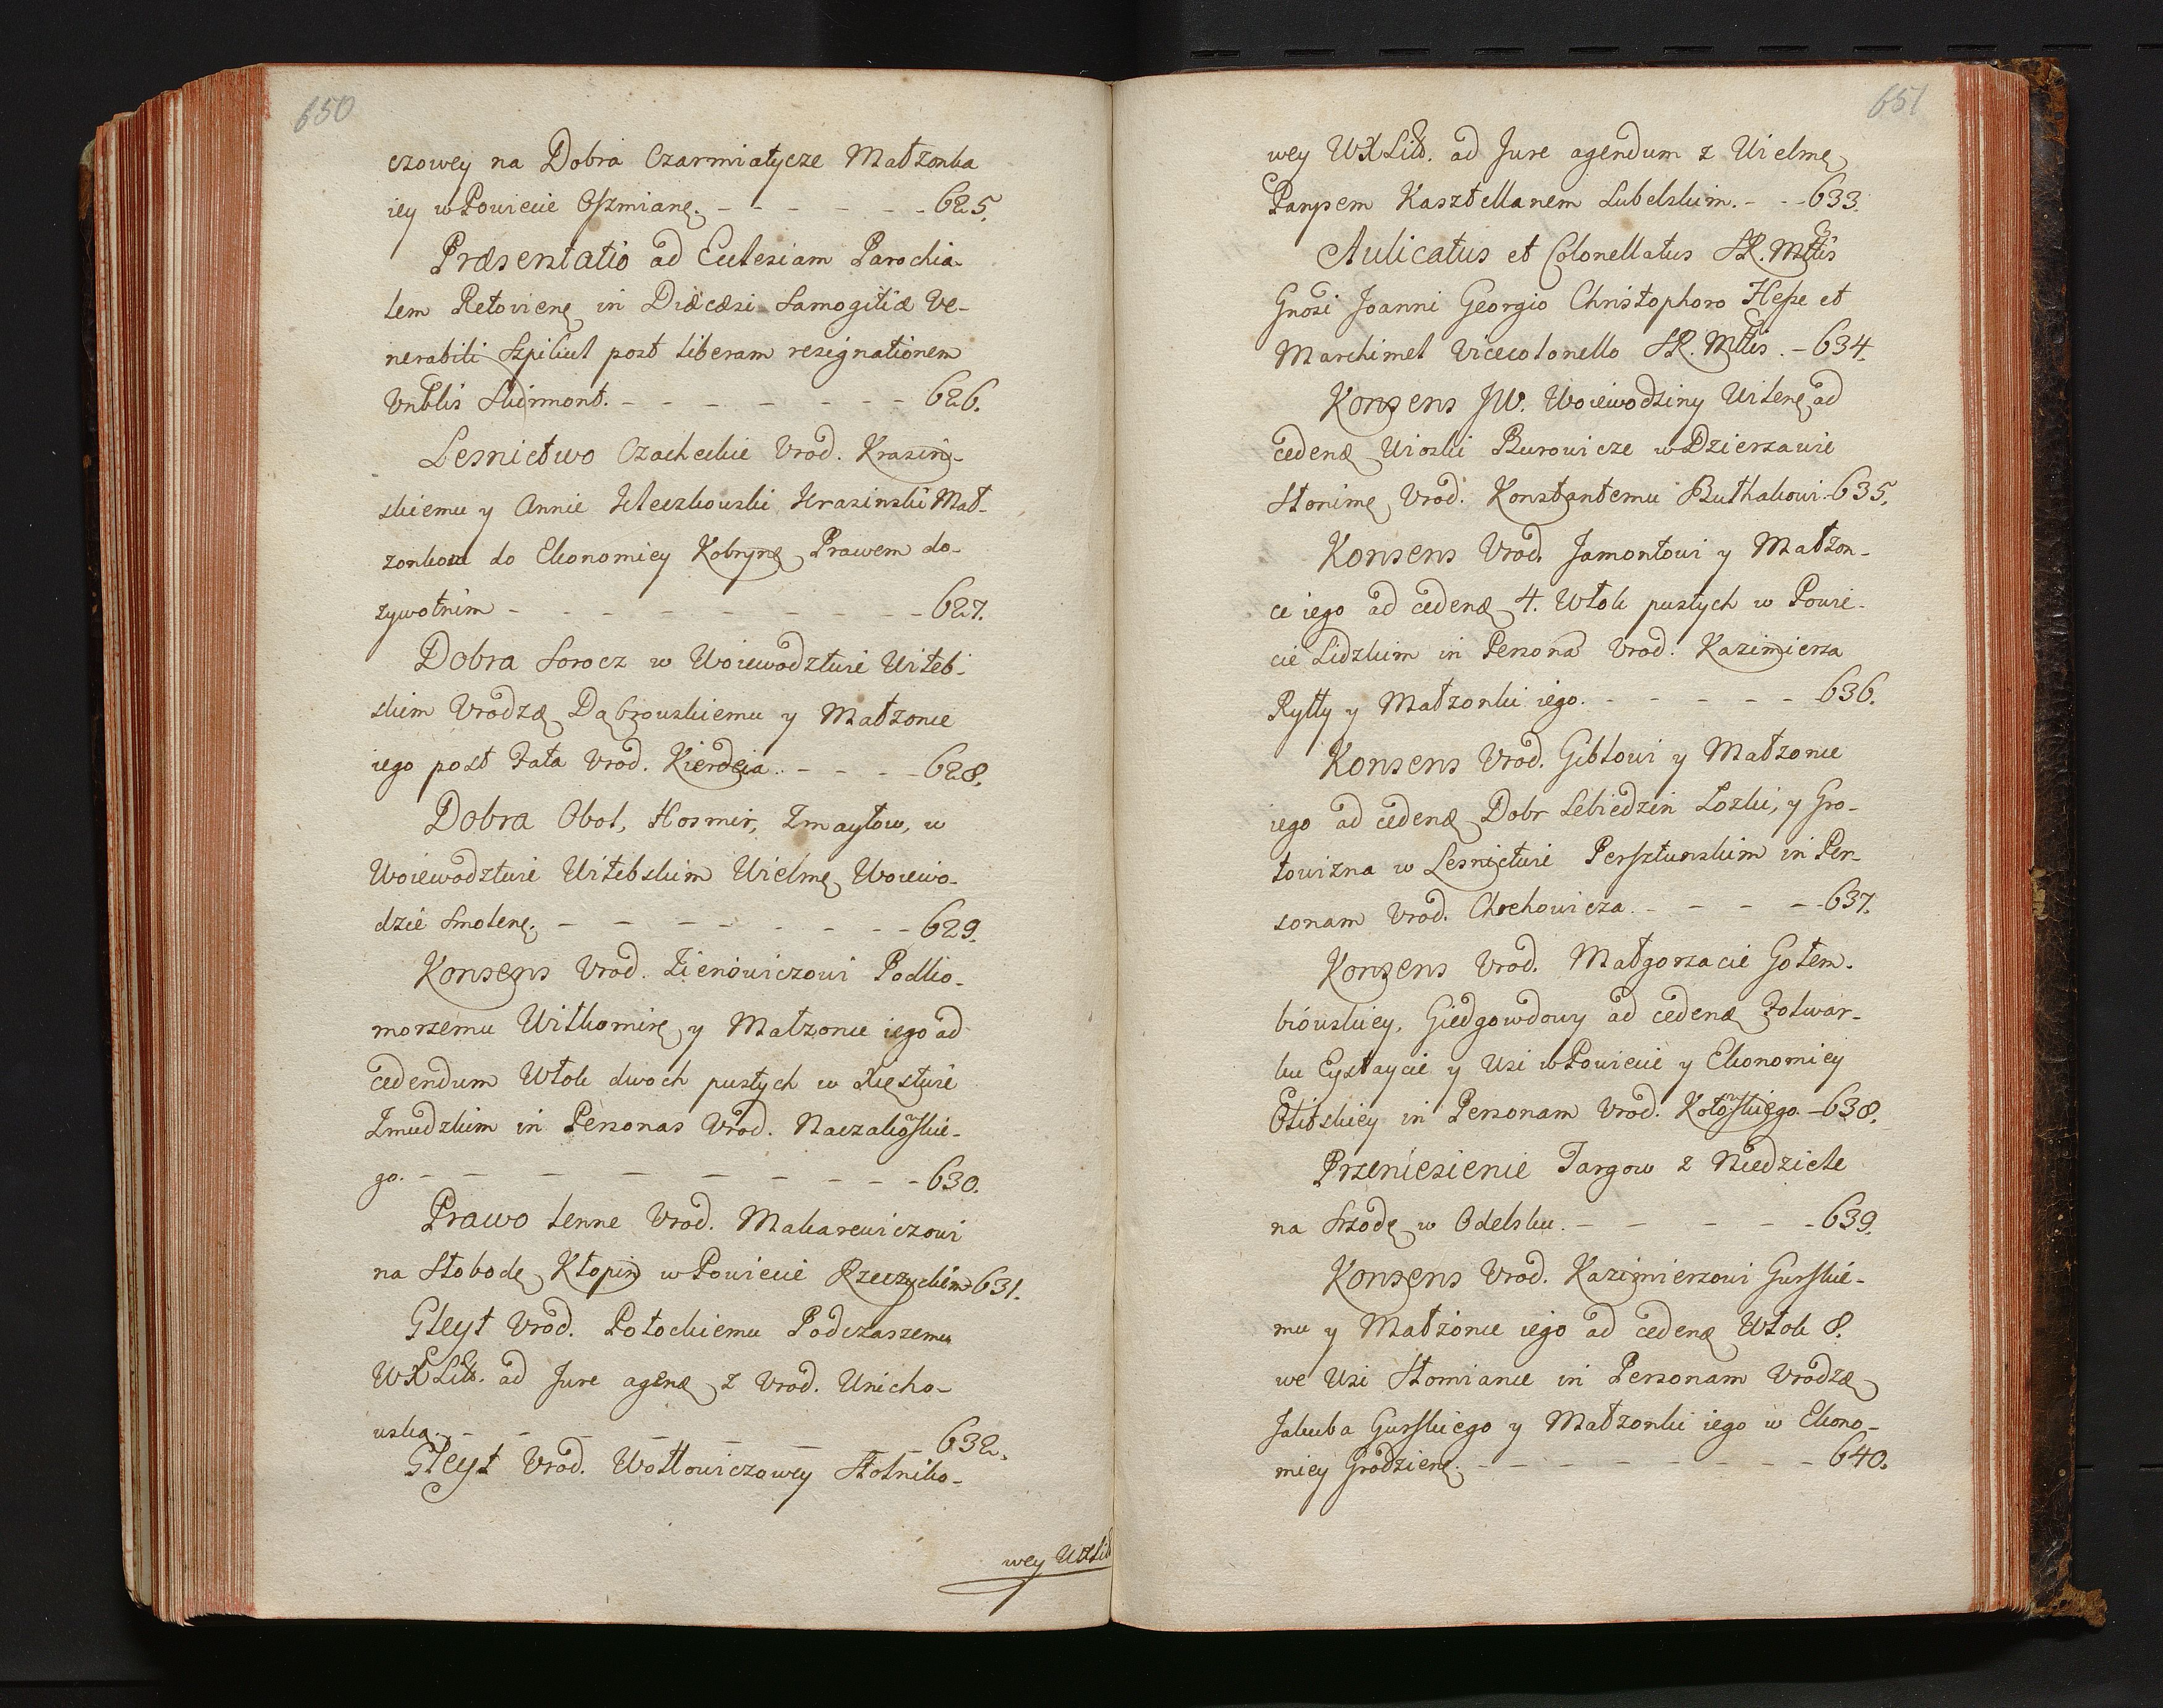 650
czowey na Dobra Czarmiatycze Małzonka
iey w Powiecie Oszmianę. - - - - - - - 625.
Præsentatio ad Ecclesiam Parochia-
lem Retovienę in Diæcæsi Samogitiæ Ve-
nerabili Szpikiel post liberam resignationem
Vnblis Skirmont. - - - - - - - - 626.
Lesnictwo Czacheckie Vrod. Krasiń-
skiemu y Annie Kleczkouski Krasinski Mał-
zonkom do Ekonomiey Kobrynę Prawem do-
zywotnim - - - - - - - - - 627.
Dobra Sorocz w Woiewodztwie Witeb-
skim Vrodzę Dąbrouskiemu y Małzonce
iego post Fata Vrod. Kierdeia. - - - - 628.
Dobra Obol, Hosmir, Zmaytow, w
Woiewodztwie Witebskim Wielmę Woiewo-
dzie Smolenę. - - - - - - - - 629.
Konsens Vrod. Zienowiczowi Podko-
morzemu Wilkomirę y Małzonce iego ad
cedendum Włok dwoch pustych w Xięstwie
Zmudzkim in Personas Vrod. Naczakoskie-
go. - - - - - - - - - 630.
Prawo lenne Vrod. Makarewiczowi
na Słobodę Kłopin w Powiecie Rzeczyckim 631.
Gleyt Vrod. Potockiemu Podczaszemu
WXLitt. ad Jure agenę z Vrod. Unicho-
uską. - - - - - - - 632.
Gleyt Vrod. Wołłowiczowey Stolniko-
wey WXLitt
651
wey WXLitt. ad Jure agendum z Wielmę
Parysem Kasztellanem Lubelskim. - - - 633.
Aulicatus et Colonellatus SR. Mttis
Gnosi Joanni Georgio Christophoro Hesse et
Marchimel Vicecolonello SR. Mttis. - 634.
Konsens JW. Woiewodziny Wilenę ad
cedenę Wioski Burowicze w Dzierzawie
Słonimę Vrod. Konstantemu Buthakowi. 635.
Konsens Vrod. Jamontowi y Małzon-
ce iego ad cedenę 4. Włok pustych w Powie-
cie Lidzkim in Persona Vrod. Kazimierza
Rytty y Małzonki iego. - - - - - - 636.
Konsens Vrod. Giblowi y Małzonce
iego ad cedenę Dobr Lebiedzin Łozki, y Gro-
towizna w Lesnictwie Persztunskim in Per-
sonam Vrod. Chochowicza. - - - - - 637.
Konsens Vrod. Małgorzacie Gołem-
biouskiey, Giedgowdowy ad cedenę Folwar-
ku Eystaycie y Wsi w Powiecie y Ekonomiey
Olitskiey in Personam Vrod. Kołoskiego. - 638.
Przeniesienie Targow z Niedziele
na Srzodę w Odelsku. - - - - - 639.
Konsens Vrod. Kazimierzowi Gurskie-
mu y Małzonce iego ad cedenę Włok 8.
we Wsi Słomiance in Personam Vrodzę
Jakuba Gurskiego y Małzonki iego w Ekono-
miey Grodzienę. - - - - - - - - 640.